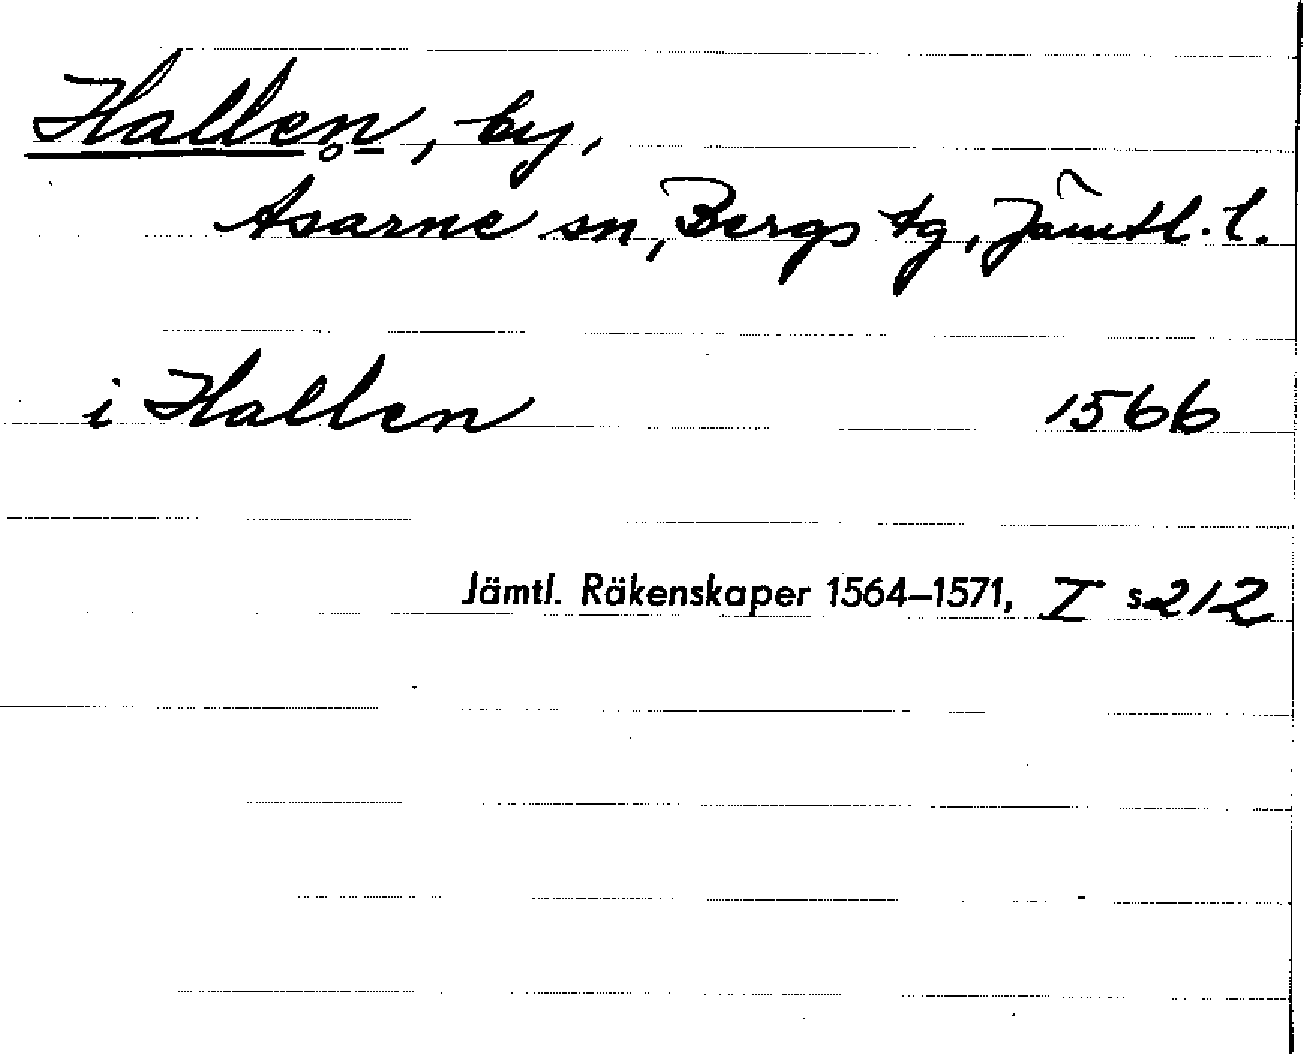 Hallen, by,
Åsarne sn, Bergs tg, Jämtl. l.
i Hallen 1566
Jämtl. Räkenskaper 1564–1571, I s 212